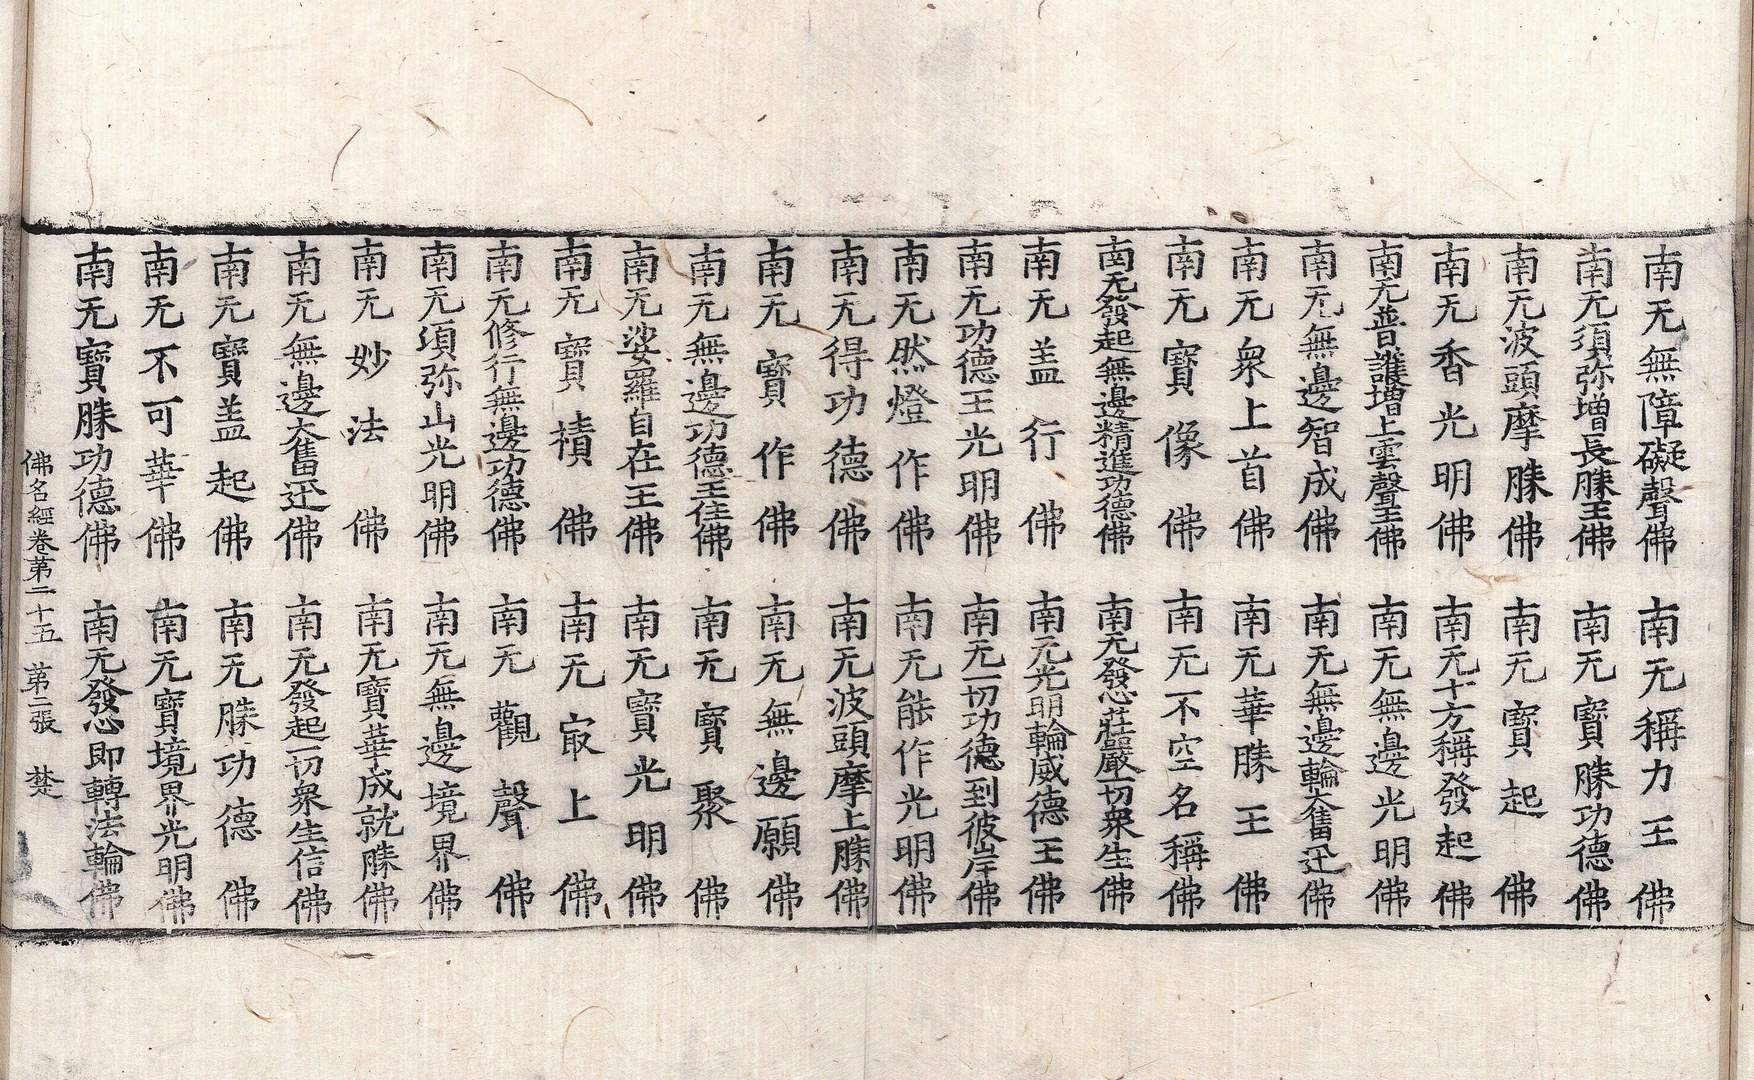 南无無障礙聲佛 南无稱力王佛
南无須弥增長勝王佛 南无寶勝功德佛
南无波頭摩勝佛 南无寶起佛
南无香光明佛 南无十方稱發起佛
南无普護增上雲聲王佛 南无無邊光明佛
南无無邊智成佛 南无無邊輪奮迅佛
南无衆上首佛 南无華勝王佛
南无寶像佛 南无不空名稱佛
南无發起無邊精進功德佛 南无發心莊嚴一切衆生佛
南无盖行佛 南无光明輪威德王佛
南无功德王光明佛 南无一切功德到彼岸佛
南无然燈作佛 南无能作光明佛
南无得功德佛 南无波頭摩上勝佛
南无寶作佛 南无無邊願佛
南无無邊功德王住佛 南无寶聚佛
南无娑羅自在王佛 南无寶光明佛
南无寶積佛 南无㝡上佛
南无修行無邊功德佛 南无觀聲佛
南无須弥山光明佛 南无無邊境界佛
南无妙法佛 南无寶華成就勝佛
南无無邊奮迅佛 南无發起一切衆生信佛
南无寶盖起佛 南无勝功德佛
南无不可華佛 南无寶境界光明佛
南无寶勝功德佛 南无發心即轉法輪佛
佛名經卷第二十五 第二張 楚